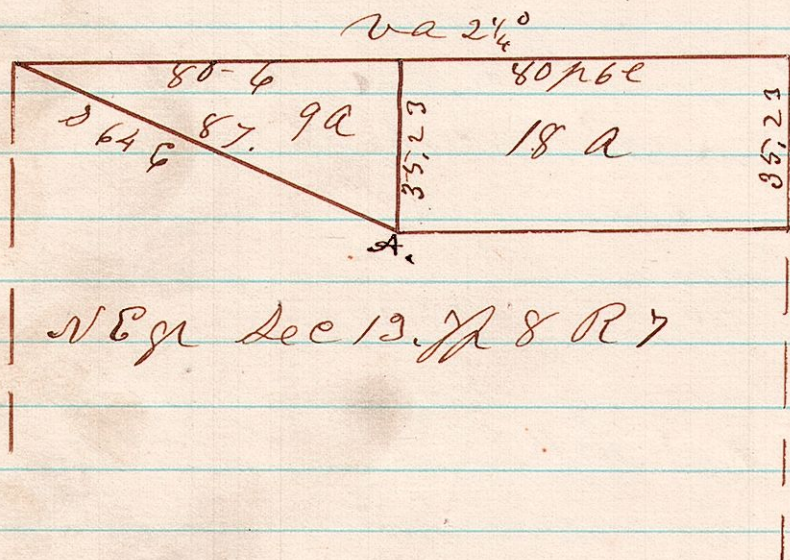 va 2¼°
80-6 80 p6e
S 64 E 87. 9a 35,23 18 a 35,23
A.
NE qr Sec 13. Tp 8 R 7